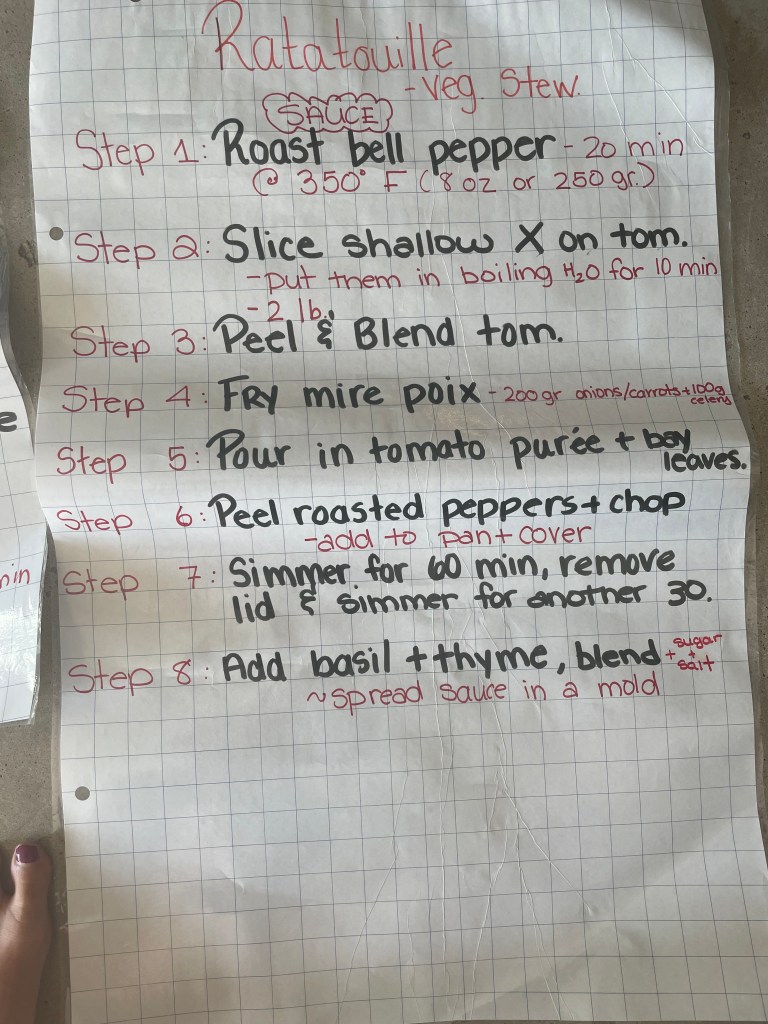 Ratatouille
- veg. Stew.
SAUCE
Step 1: Roast bell pepper - 20 min
@ 350° F (8 oz or 250 gr.)
Step 2: Slice shallow X on tom.
- put them in boiling H₂O for 10 min
- 2 lb.
Step 3: Peel & Blend tom.
Step 4: Fry mire poix - 200 gr onions/carrots + 100g
celery
Step 5: Pour in tomato purée + bay
leaves.
Step 6: Peel roasted peppers + chop
- add to pan + cover
Step 7: Simmer for 60 min, remove
lid & simmer for another 30.
Step 8: Add basil + thyme, blend + sugar
+ salt
~ spread sauce in a mold
e
min